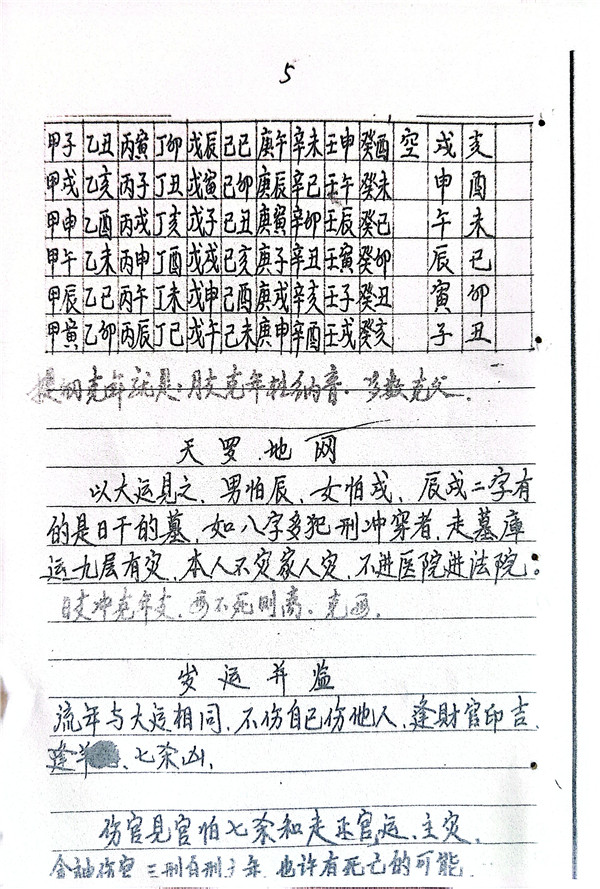 5
甲子 乙丑 丙寅 丁卯 戊辰 己巳 庚午 辛未 壬申 癸酉 空 戌 亥
甲戌 乙亥 丙子 丁丑 戊寅 己卯 庚辰 辛巳 壬午 癸未 申 酉
甲申 乙酉 丙戌 丁亥 戊子 己丑 庚寅 辛卯 壬辰 癸巳 午 未
甲午 乙未 丙申 丁酉 戊戌 己亥 庚子 辛丑 壬寅 癸卯 辰 巳
甲辰 乙巳 丙午 丁未 戊申 己酉 庚戌 辛亥 壬子 癸丑 寅 卯
甲寅 乙卯 丙辰 丁巳 戊午 己未 庚申 辛酉 壬戌 癸亥 子 丑
提纲克年就是:月支克年柱纳音.多数克父.
天罗地网
以大运见之、男怕辰、女怕戌、辰戌二字有
的是日干的墓、如八字多犯刑冲穿者、走墓庫
运九层有灾、本人不灾家人灾、不进医院进法院。
日支冲克年支、不死则离.克
岁运并监
流年与大运相同、不伤自己伤他人、逢财官印吉、
逢羊、七杀凶、
伤官见官怕七杀和走正官运、主灾、
金神伤空三刑自刑子年、也许有死亡的可能.